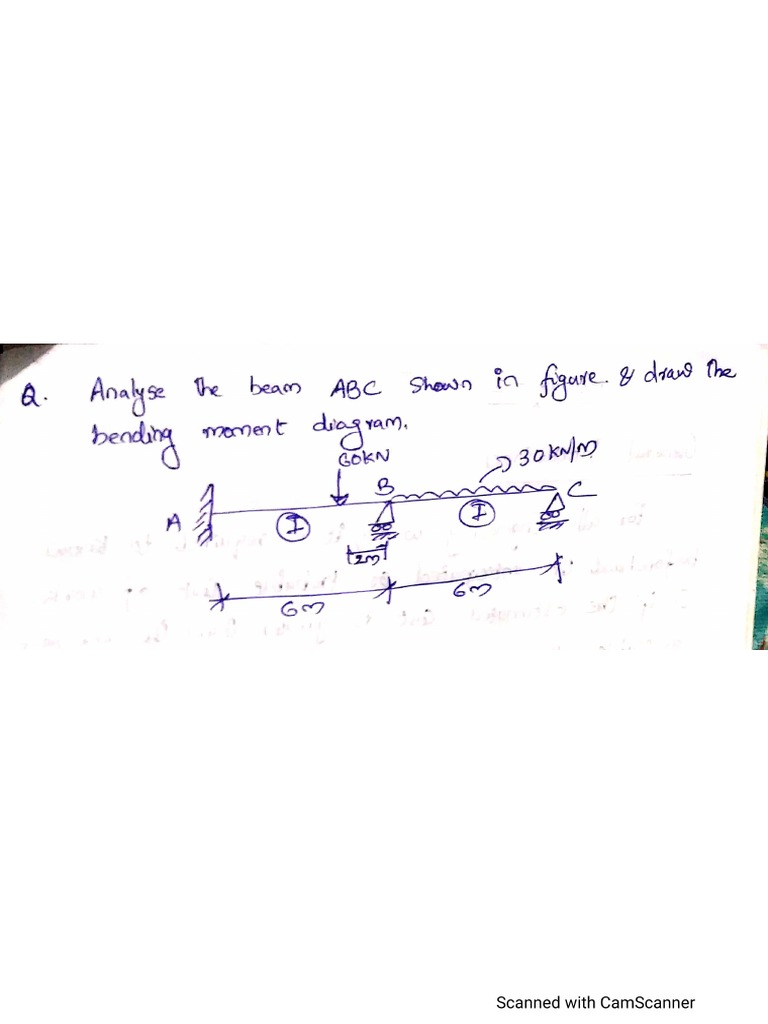 Q. Analyse the beam ABC shown in figure & draw the
bending moment diagram.
60KN
30KN/m
A
I
B
I
C
2m
6m
6m
Scanned with CamScanner